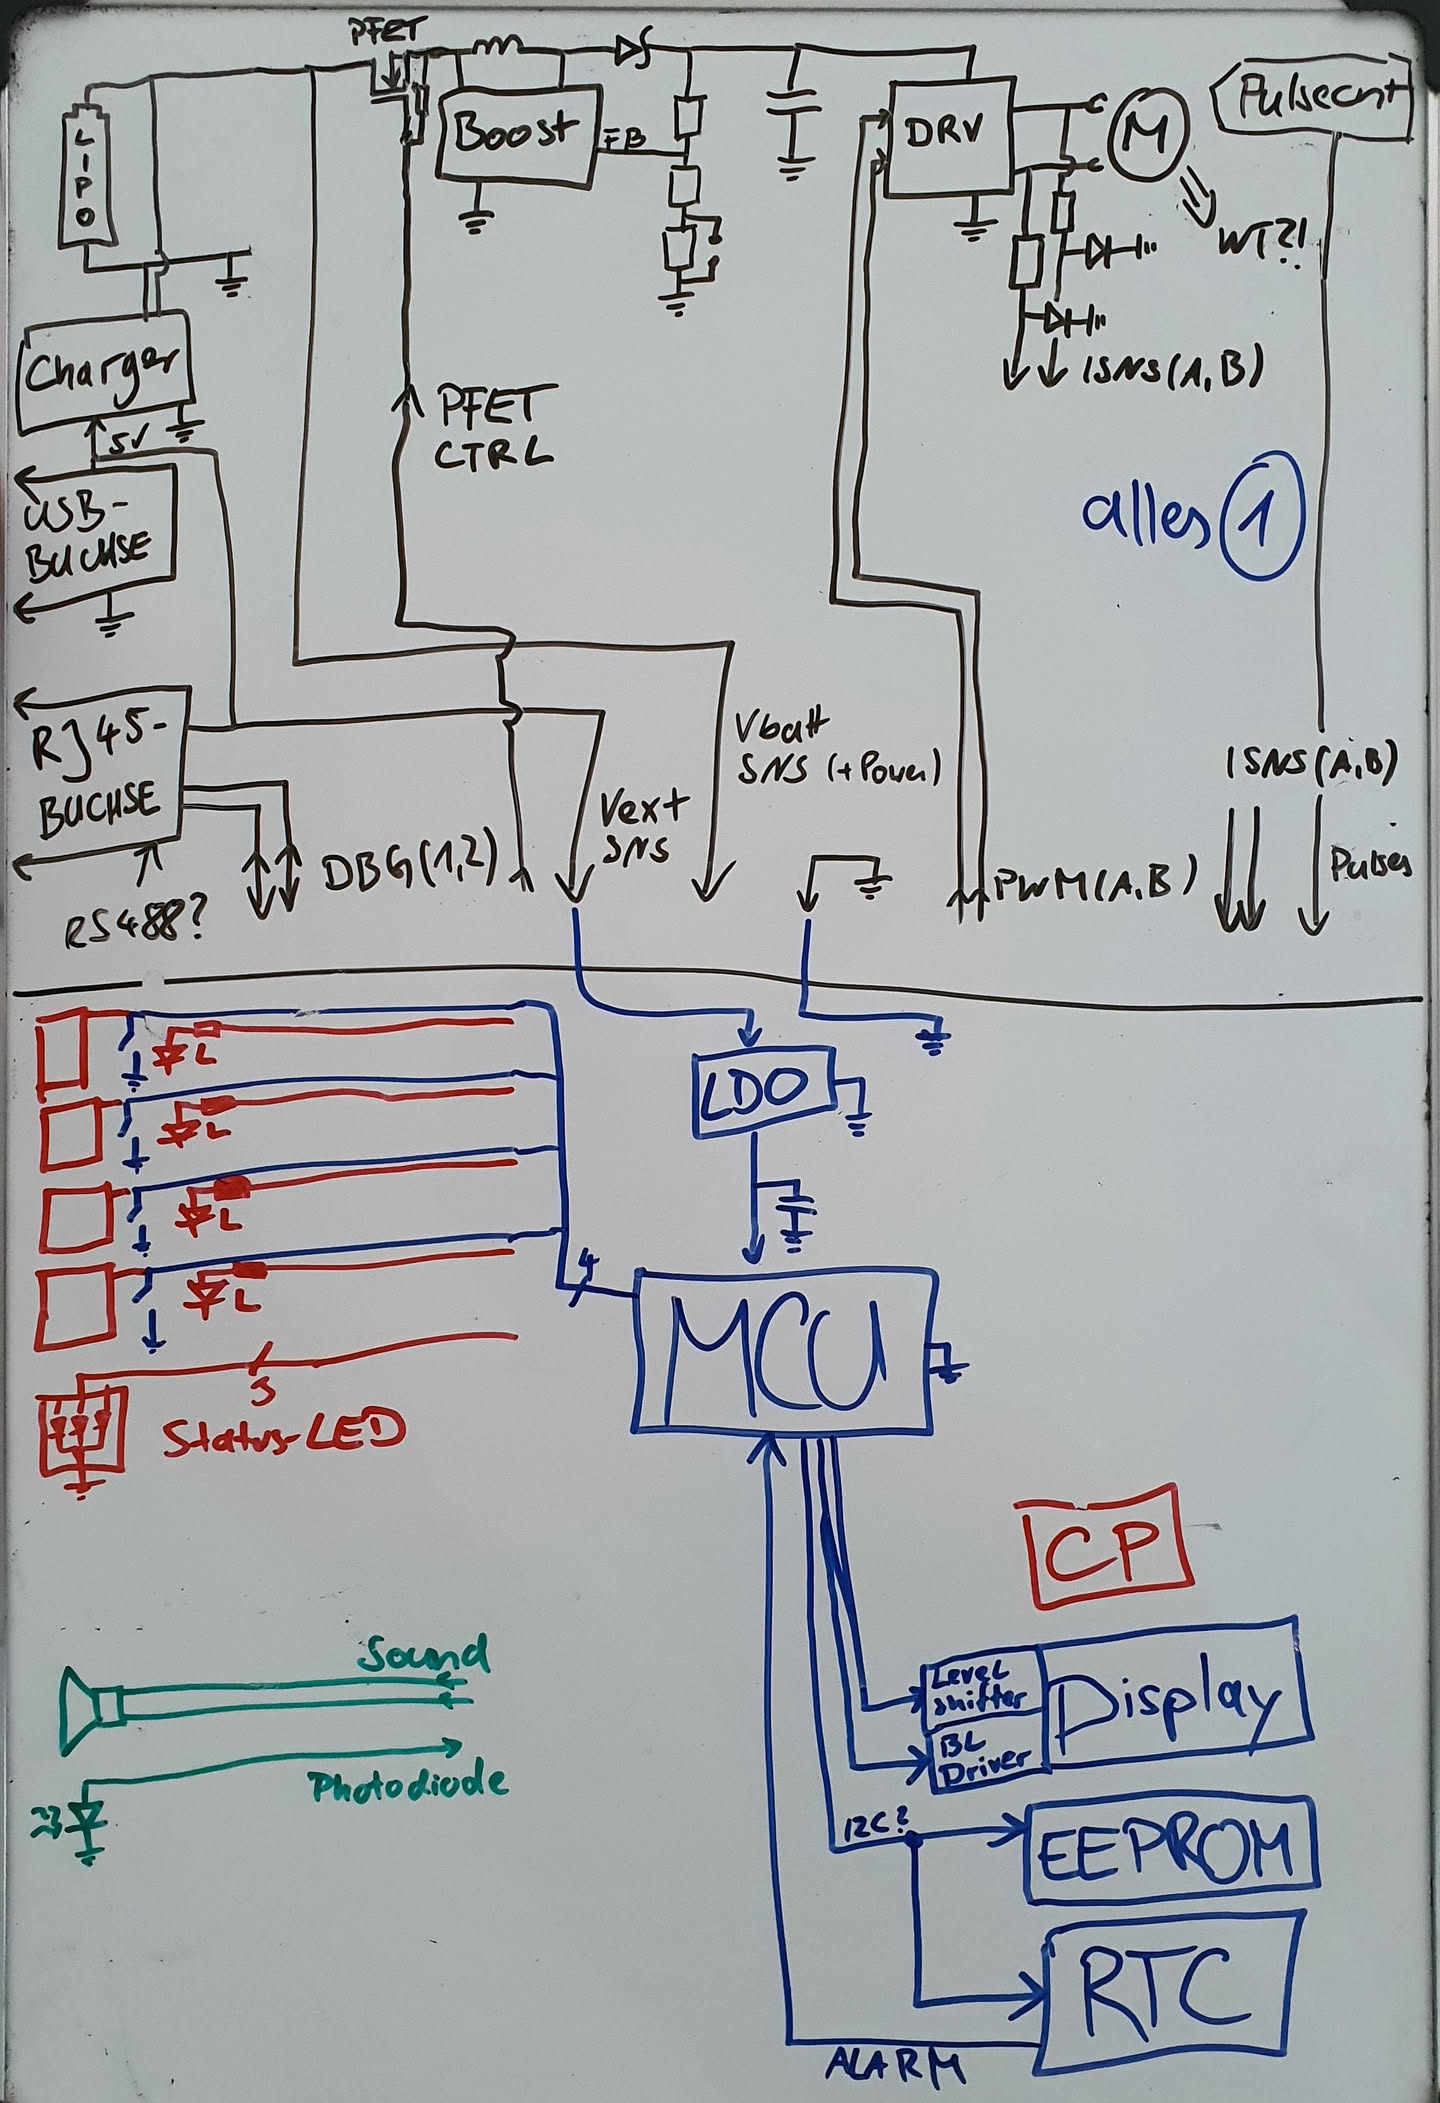 PFET
LIPO
Boost
FB
DRV
M
Pulsecnt
WT?!
Charger
5V
ISNS(A,B)
PFET
CTRL
USB-
BUCHSE
alles 1
RJ45-
BUCHSE
Vbatt
SNS (+Power)
ISNS(A,B)
Vext
SNS
DBG(1,2)
PWM(A,B)
Pulses
RS488?
L
L
L
L
LDO
4
MCU
3
Status-LED
CP
Sound
Level
shifter
Display
BL
Driver
Photodiode
I2C?
EEPROM
RTC
ALARM